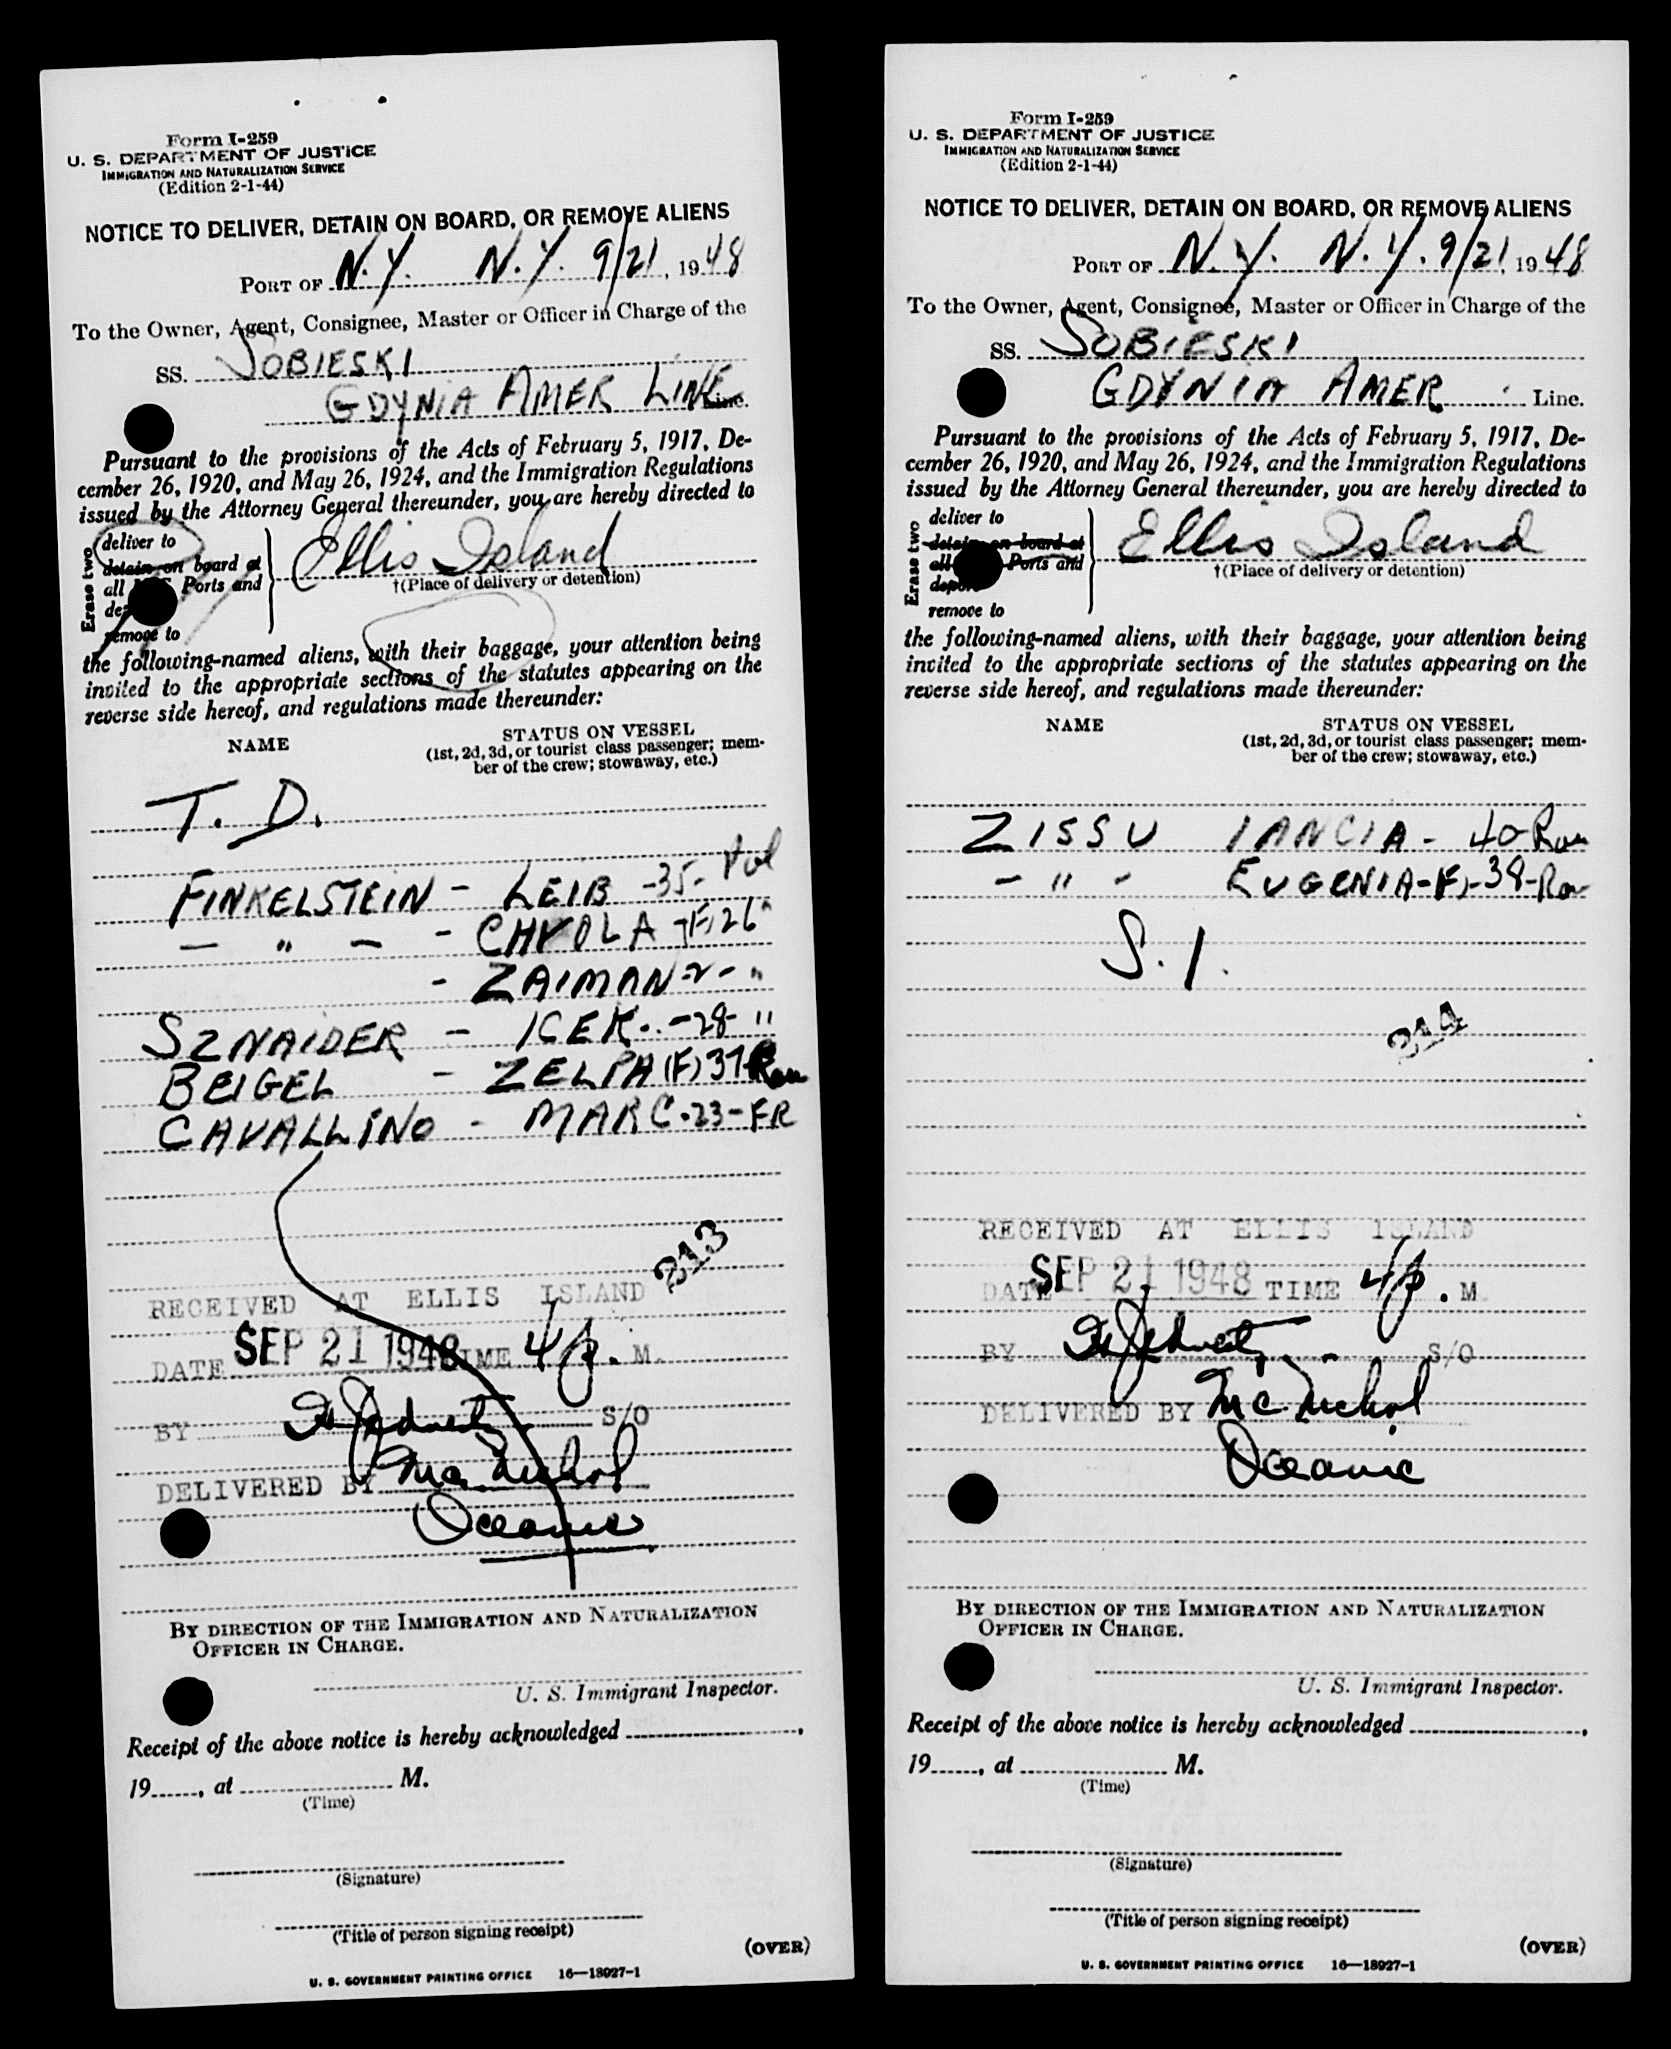 Form I-259
U. S. DEPARTMENT OF JUSTICE
IMMIGRATION AND NATURALIZATION SERVICE
(Edition 2-1-44)
NOTICE TO DELIVER, DETAIN ON BOARD, OR REMOVE ALIENS
PORT OF N.Y. N.Y. 9/21, 1948
To the Owner, Agent, Consignee, Master or Officer in Charge of the
SS. SOBIESKI
GDYNIA AMER LINE Line.
Pursuant to the provisions of the Acts of February 5, 1917, De-
cember 26, 1920, and May 26, 1924, and the Immigration Regulations
issued by the Attorney General thereunder, you are hereby directed to
Erase two
deliver to
detain on board at
all Ports and
remove to
Ellis Island
†(Place of delivery or detention)
the following-named aliens, with their baggage, your attention being
invited to the appropriate sections of the statutes appearing on the
reverse side hereof, and regulations made thereunder:
NAME STATUS ON VESSEL
(1st, 2d, 3d, or tourist class passenger; mem-
ber of the crew; stowaway, etc.)
T. D.
FINKELSTEIN - LEIB -35- Pol
- " - - CHYOLA -(F) 26 "
- ZAIMAN -2- "
SZNAIDER - ICEK -28- "
BEIGEL - ZELPA (F) 37 Rou
CAVALLINO - MARC -23- FR
213
RECEIVED AT ELLIS ISLAND
DATE SEP 21 1948 TIME 4 p. M.
BY S/O
DELIVERED BY McNichol
Oceanic
BY DIRECTION OF THE IMMIGRATION AND NATURALIZATION
OFFICER IN CHARGE.
U. S. Immigrant Inspector.
Receipt of the above notice is hereby acknowledged
19, at M.
(Time)
(Signature)
(Title of person signing receipt)
(OVER)
U. S. GOVERNMENT PRINTING OFFICE 16—18927-1
Form I-259
U. S. DEPARTMENT OF JUSTICE
IMMIGRATION AND NATURALIZATION SERVICE
(Edition 2-1-44)
NOTICE TO DELIVER, DETAIN ON BOARD, OR REMOVE ALIENS
PORT OF N.Y. N.Y. 9/21, 1948
To the Owner, Agent, Consignee, Master or Officer in Charge of the
SS. SOBIESKI
GDYNIA AMER Line.
Pursuant to the provisions of the Acts of February 5, 1917, De-
cember 26, 1920, and May 26, 1924, and the Immigration Regulations
issued by the Attorney General thereunder, you are hereby directed to
Erase two
deliver to
detain on board at
all Ports and
remove to
Ellis Island
†(Place of delivery or detention)
the following-named aliens, with their baggage, your attention being
invited to the appropriate sections of the statutes appearing on the
reverse side hereof, and regulations made thereunder:
NAME STATUS ON VESSEL
(1st, 2d, 3d, or tourist class passenger; mem-
ber of the crew; stowaway, etc.)
ZISSU IANCIA - 40 Rou
- " - EUGENIA-(F)-38-Rou
S. I.
214
RECEIVED AT ELLIS ISLAND
DATE SEP 21 1948 TIME 4 p. M.
BY S/O
DELIVERED BY McNichol
Oceanic
BY DIRECTION OF THE IMMIGRATION AND NATURALIZATION
OFFICER IN CHARGE.
U. S. Immigrant Inspector.
Receipt of the above notice is hereby acknowledged
19, at M.
(Time)
(Signature)
(Title of person signing receipt)
(OVER)
U. S. GOVERNMENT PRINTING OFFICE 16—18927-1